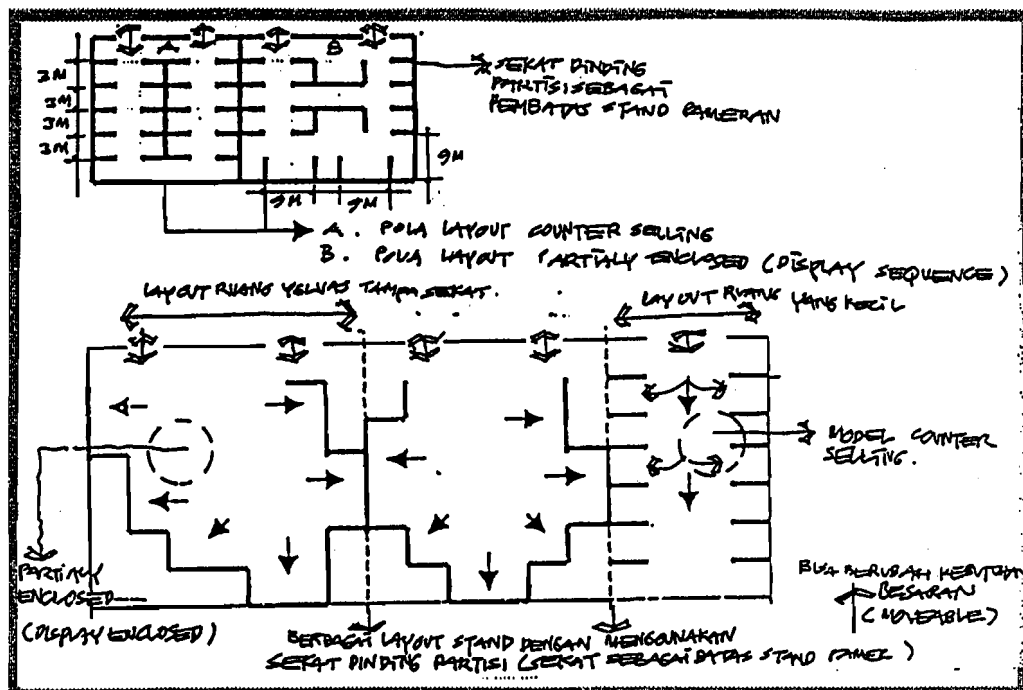 A
B
3M
3M
3M
3M
9M
9M
9M
SEKAT DINDING
PARTISI SEBAGAI
PEMBATAS STAND PAMERAN
A. POLA LAYOUT COUNTER SELLING
B. POLA LAYOUT PARTIALY ENCLOSED (DISPLAY SEQUENCE)
LAYOUT RUANG YG LUAS TANPA SEKAT.
LAYOUT RUANG YANG KECIL
MODEL COUNTER
SELLING.
PARTIALY
ENCLOSED
(DISPLAY ENCLOSED)
BISA BERUBAH KEBUTUHAN
BESARAN
(MOVEABLE)
BERBAGAI LAYOUT STAND DENGAN MENGGUNAKAN
SEKAT DINDING PARTISI (SEKAT SEBAGAI BATAS STAND PAMER)